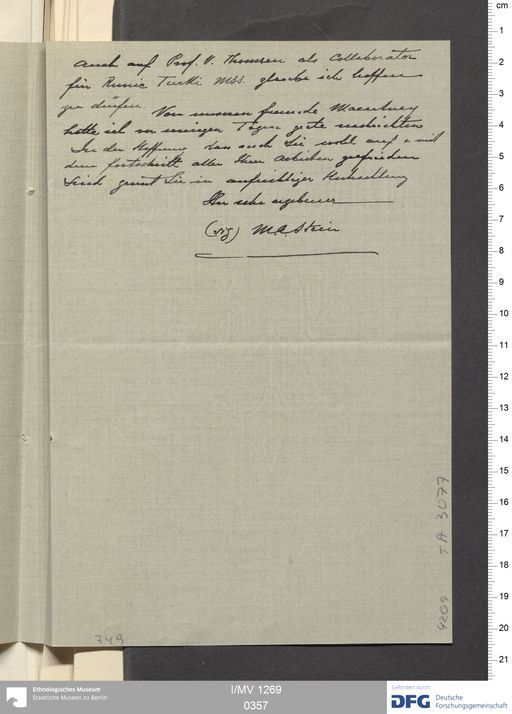 Auch auf Prof. V. Thomsen als Collaborator
für Runic Turki Mss. glaube ich hoffen
zu dürfen.
Von unserem freunde Macartney
hatte ich vor einigen Tagen gute nachrichten
In der Hoffnung dass auch Sie wohl auf u mit
dem fortschritt aller Ihrer Arbeiten zufrieden
sind grüsst Sie in aufrichtiger Hochachtung
Ihr sehr ergebener
(sig) M.A. Stein
TA 3077
4209
349
cm
1
2
3
4
5
6
7
8
9
10
11
12
13
14
15
16
17
18
19
20
21
Ethnologisches Museum
Staatliche Museen zu Berlin
I/MV 1269
0357
Gefördert durch
DFG Deutsche
Forschungsgemeinschaft